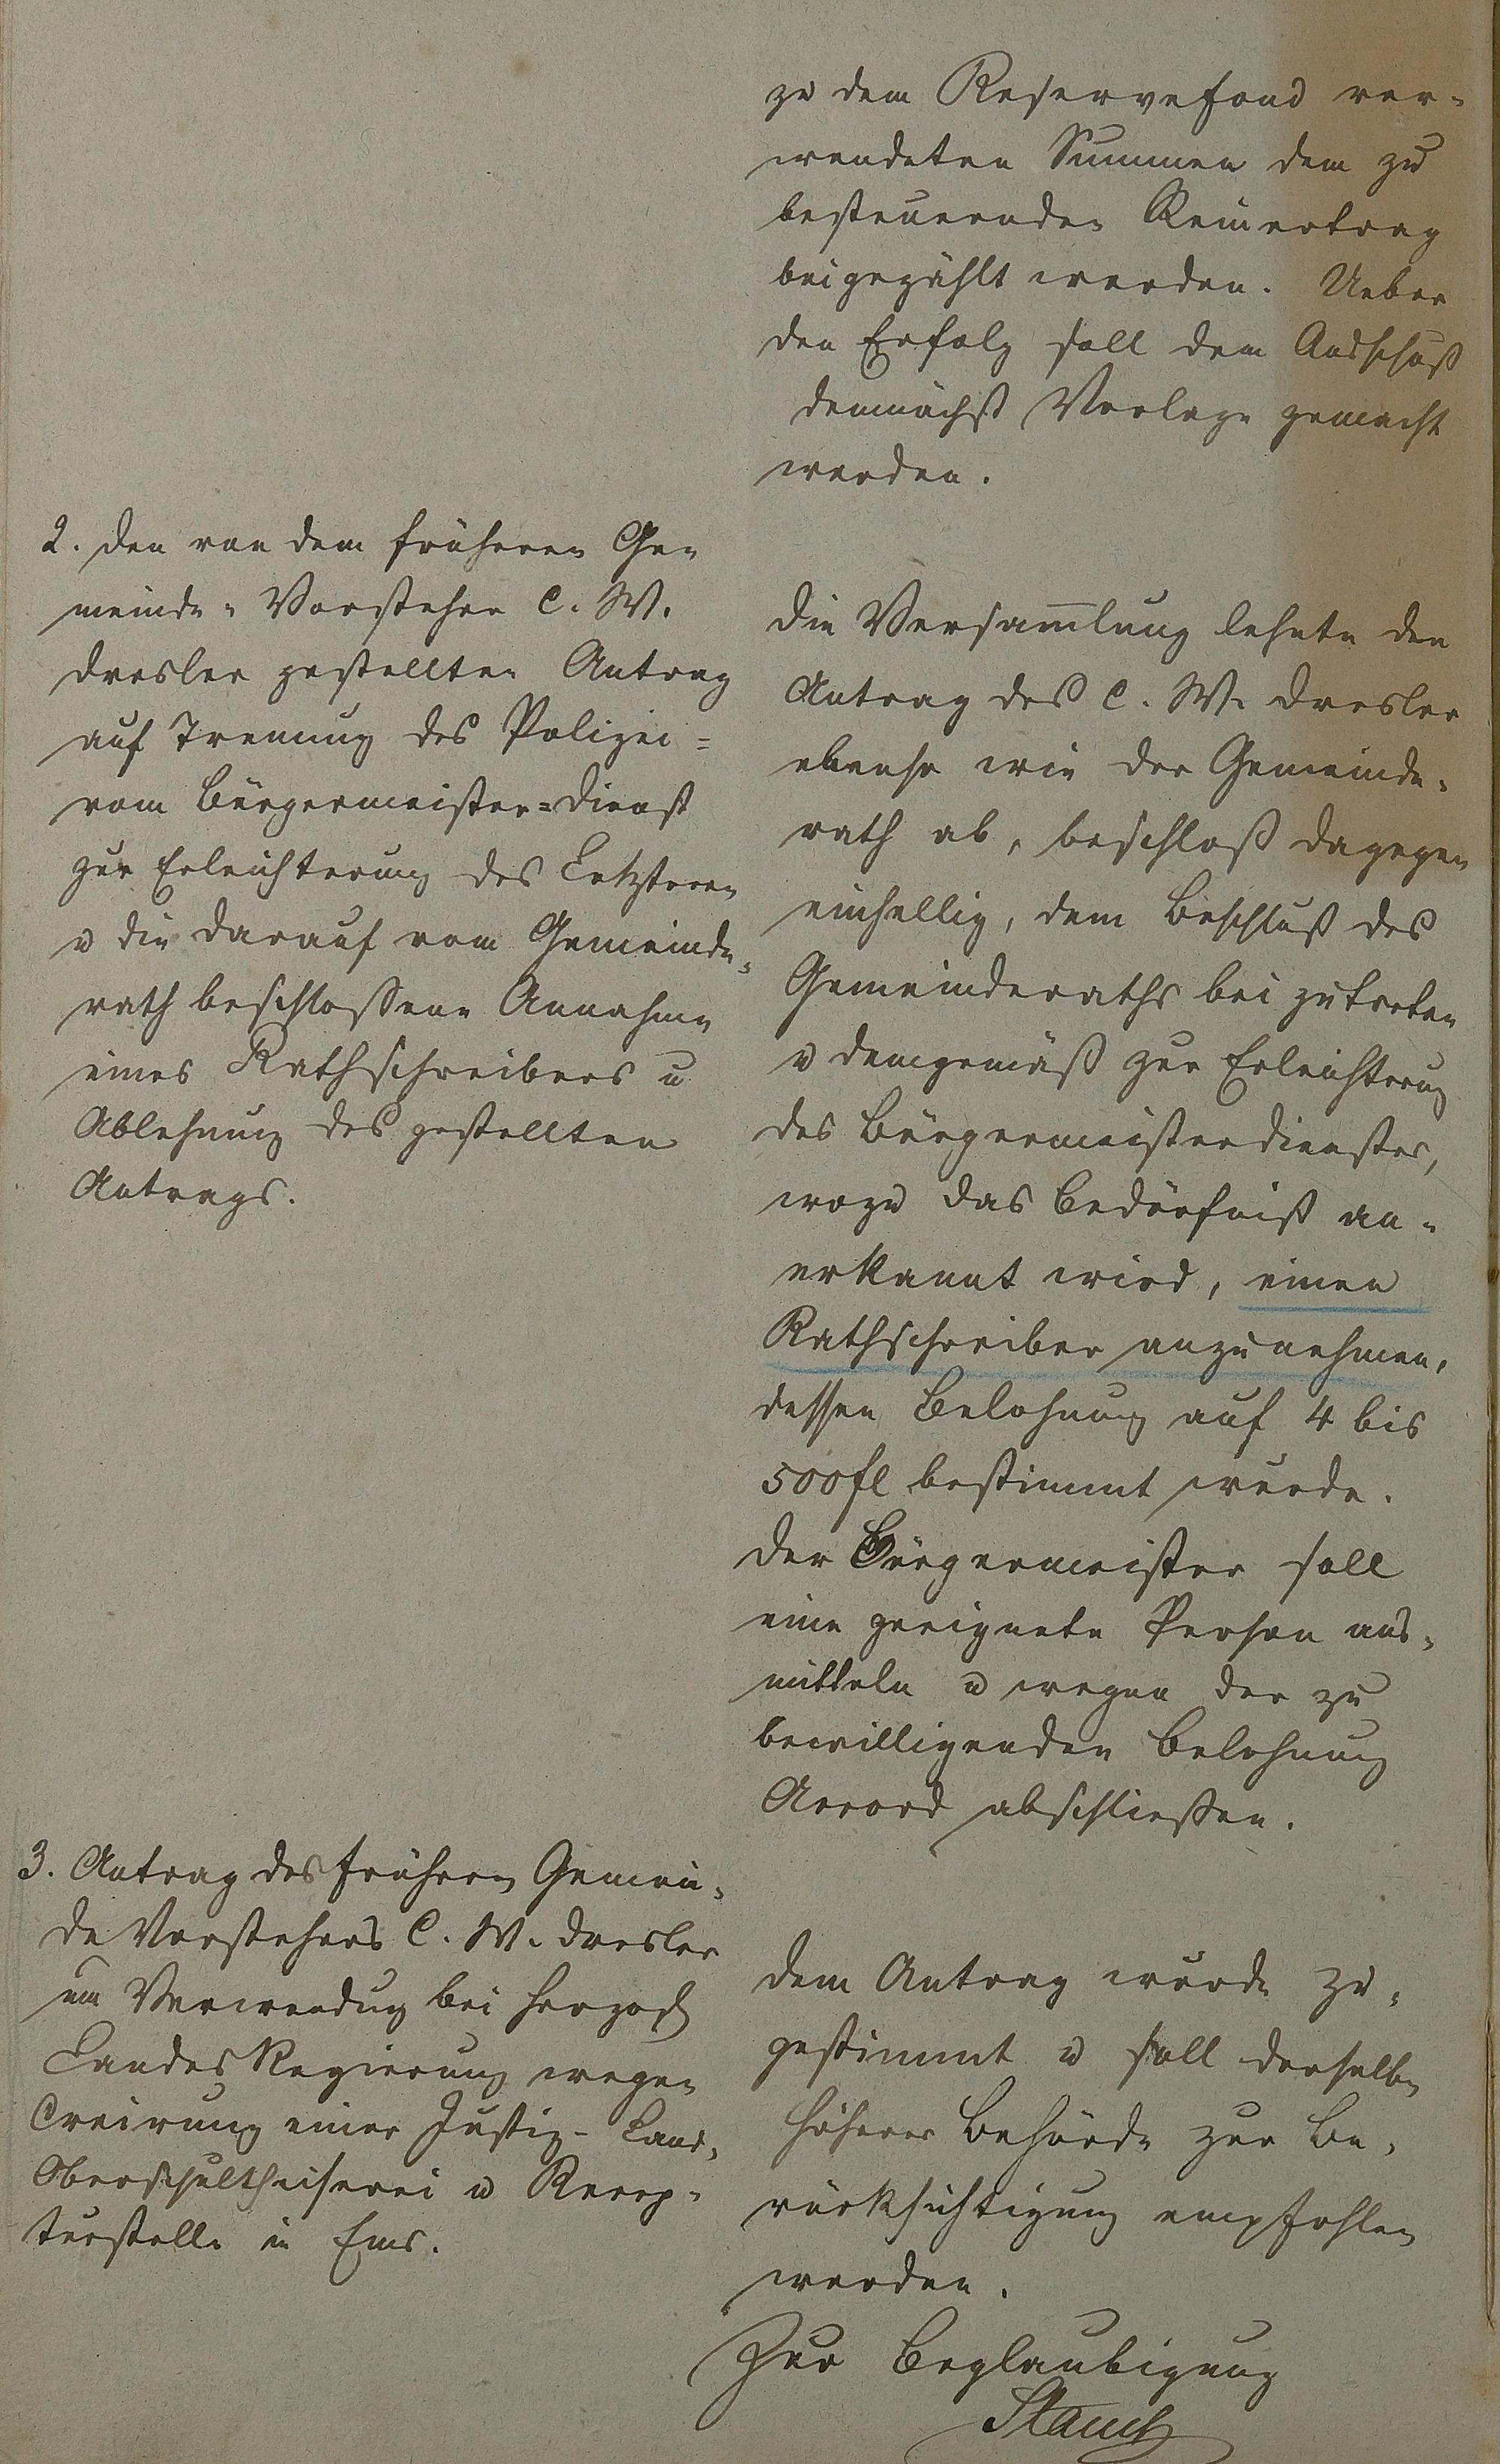 zu dem Reservefond ver-
wendeten Summen dem zu
besteuernden Reinertrag
beigezählt werden. Ueber
den Erfolg soll dem Ausschuß
demnächst Vorlage gemacht
werden.
2. den von dem früheren Ge-
meinde-Vorsteher C. W.
Dresler gestellten Antrag
auf Trennung des Polizei=
vom Bürgermeister=Dienst
zur Erleichterung des Letzteren
u die darauf vom Gemeinde-
rath beschlossene Annahme
eines Rathschreibers u
Ablehnung des gestellten
Antrags.
Die Versam̅lung lehnte den
Antrag des C. W. Dresler
ebenso wie der Gemeinde-
rath ab, beschloß dagegen
einhellig, dem Beschluß des
Gemeinderaths bei zutreten
u demgemäß zur Erleichterung
des Bürgermeisterdienstes,
wozu das Bedürfniß an-
erkannt wird, einen
Rathschreiber anzunehmen,
dessen Belohnung auf 4 bis
500 fl bestimmt wurde.
Der Bürgermeister soll
eine geeignete Person aus-
mitteln u wegen der zu
bewilligenden Belohnung
Accord abschließen.
3. Antrag des früheren Gemein-
de Vorstehers C. W. Dresler
um Verwendung bei Herzogl
Landes Regierung wegen
Creirung einer Justiz- Land-
Oberschultheiserei u Recep-
turstelle in Ems.
Dem Antrag wurde zu-
gestimmt u soll derselbe
höherer Behörde zur Be-
rücksichtigung empfohlen
werden.
Zur Beglaubigung